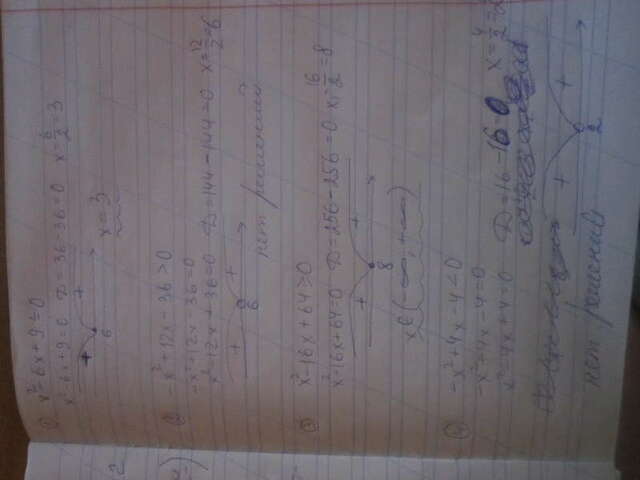 ① x²-6x+9≤0
x²-6x+9=0 D=36-36=0 x=6/2=3
+ +
6
x=3
② -x²+12x-36>0
-x²+12x-36=0
x²-12x+36=0 D=144-144=0 x=12/2=6
+ +
6
нет решений
③ x²-16x+64≥0
x²-16x+64=0 D=256-256=0 x₁=16/2=8
+ +
8
x∈(-∞,+∞)
④ -x²+4x-4<0
-x²+4x-4=0
x²-4x+4=0 D=16-16=0 x=4/2=2
+ +
2
нет решений